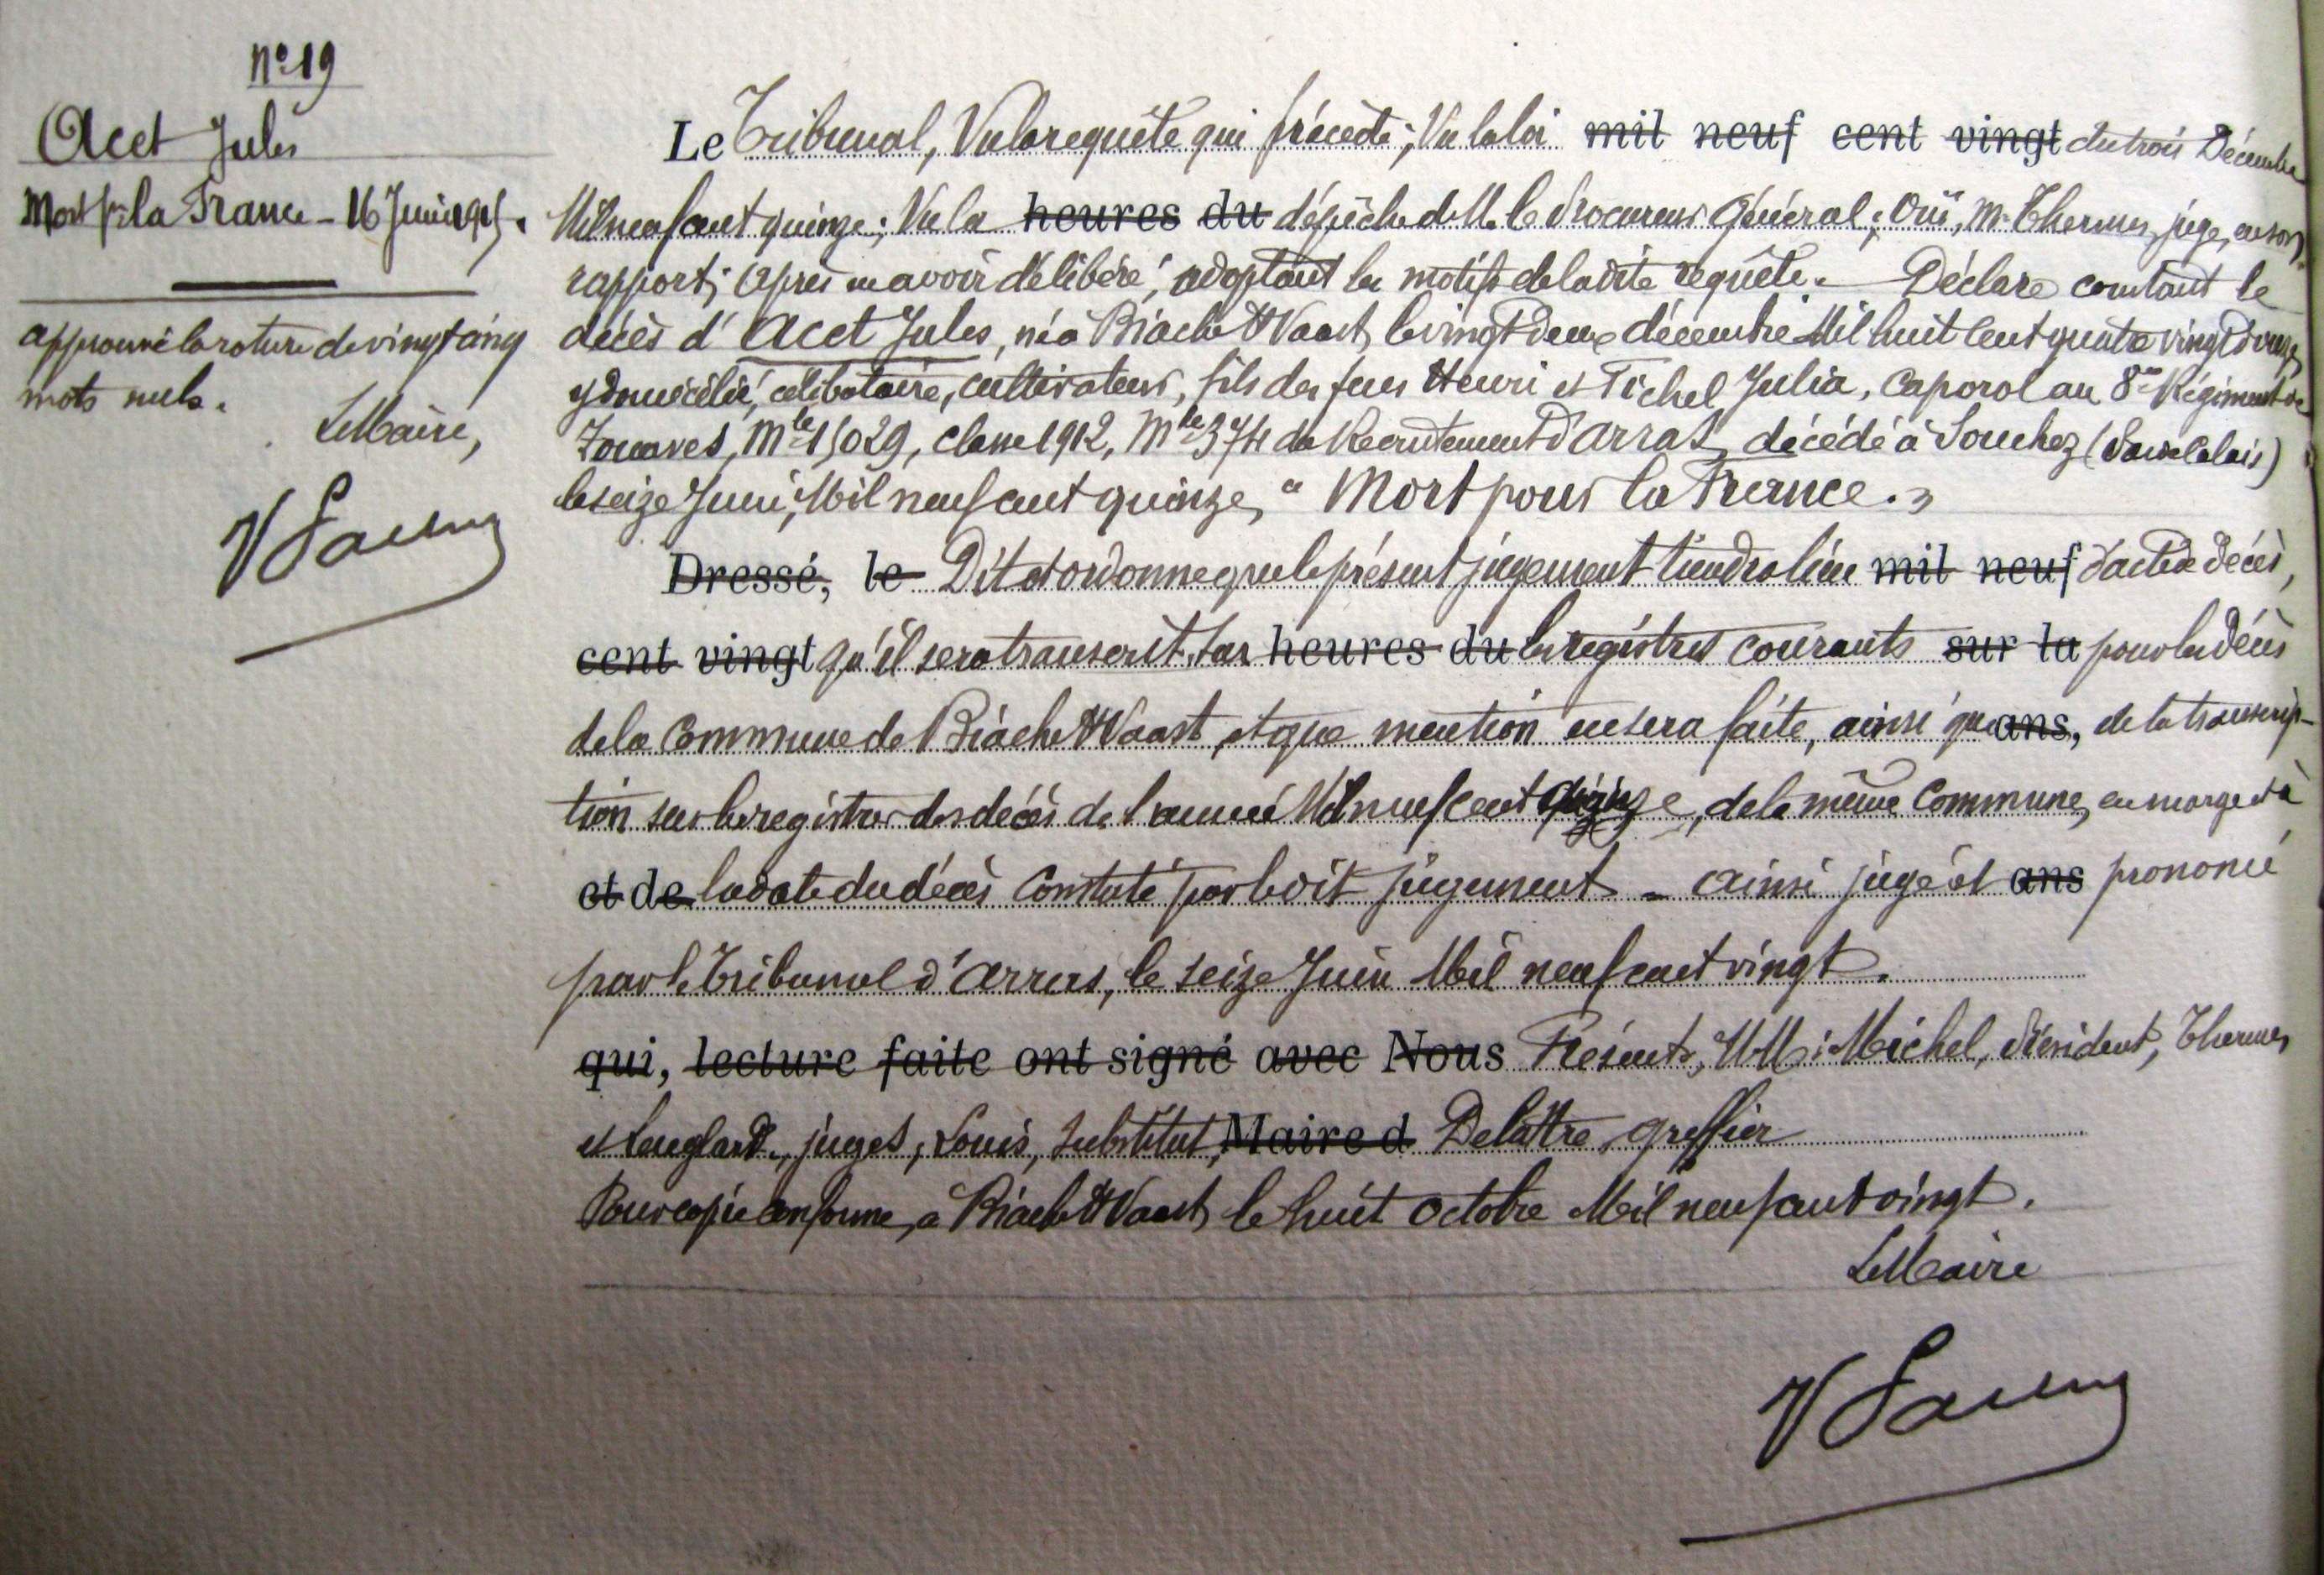 N° 19
Acet Jules
Mort pr la France - 16 Juin 1915.
approuvé la rature de vingt cinq
mots nuls.
Le Maire,
Le Tribunal, Vu la requête qui précède; Vu la loi mil neuf cent vingt du trois Décembre
Mil neuf cent quinze; Vu la heures du dépêche de M. le Procureur Général; Ouï, Mr Thermes, juge, en son
rapport; Après en avoir délibéré; adoptant les motifs de la dite requête. Déclare constant le
décès d'Acet Jules, né à Biache St Vaast, le vingt deux décembre Mil huit cent quatre vingt douze,
y domicilié, célibataire, cultivateur, fils des feus Henri et Tichel Julia, Caporal au 8me Régiment de
Zouaves, Mle 15029, classe 1912, Mle 374 du Recrutement d'Arras, décédé à Souchez (Pas de Calais)
le seize Juin, Mil neuf cent quinze, "Mort pour la France."
Dressé, le Dit et ordonne que le présent jugement tiendra lieu mil neuf d'acte de décès,
cent vingt qu'il sera transcrit sur heures du les registres courants sur la pour les décès
de la Commune de Biache St Vaast, et que mention en sera faite, ainsi que ans, de la transcrip-
tion sur les registres des décès de l'année Mil neuf cent quinze, de la même Commune, en marge et à
et de la date du décès constaté par le dit jugement - Ainsi jugé et ans prononcé
par le Tribunal d'Arras, le seize Juin Mil neuf cent vingt.
qui, lecture faite ont signé avec Nous Présents, MM: Michel, Président, Thermes
et Langlard, juges; Louis, substitut, Maire d Delattre, greffier
Pour copie conforme, à Biache St Vaast, le huit Octobre Mil neuf cent vingt.
Le Maire